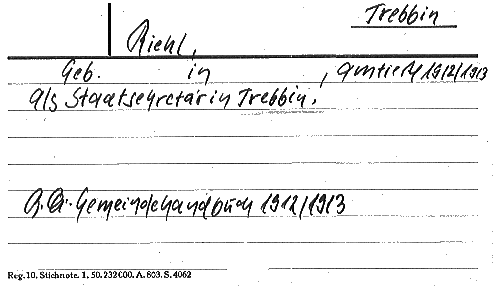 Trebbin
Riehl,
Geb. in , amtiert 1912/1913
als Staatssekretär in Trebbin.
Gemeindehandbuch 1912/1913
Reg. 10. Stichnote. 1. 50. 232000. A. 803. S. 4062